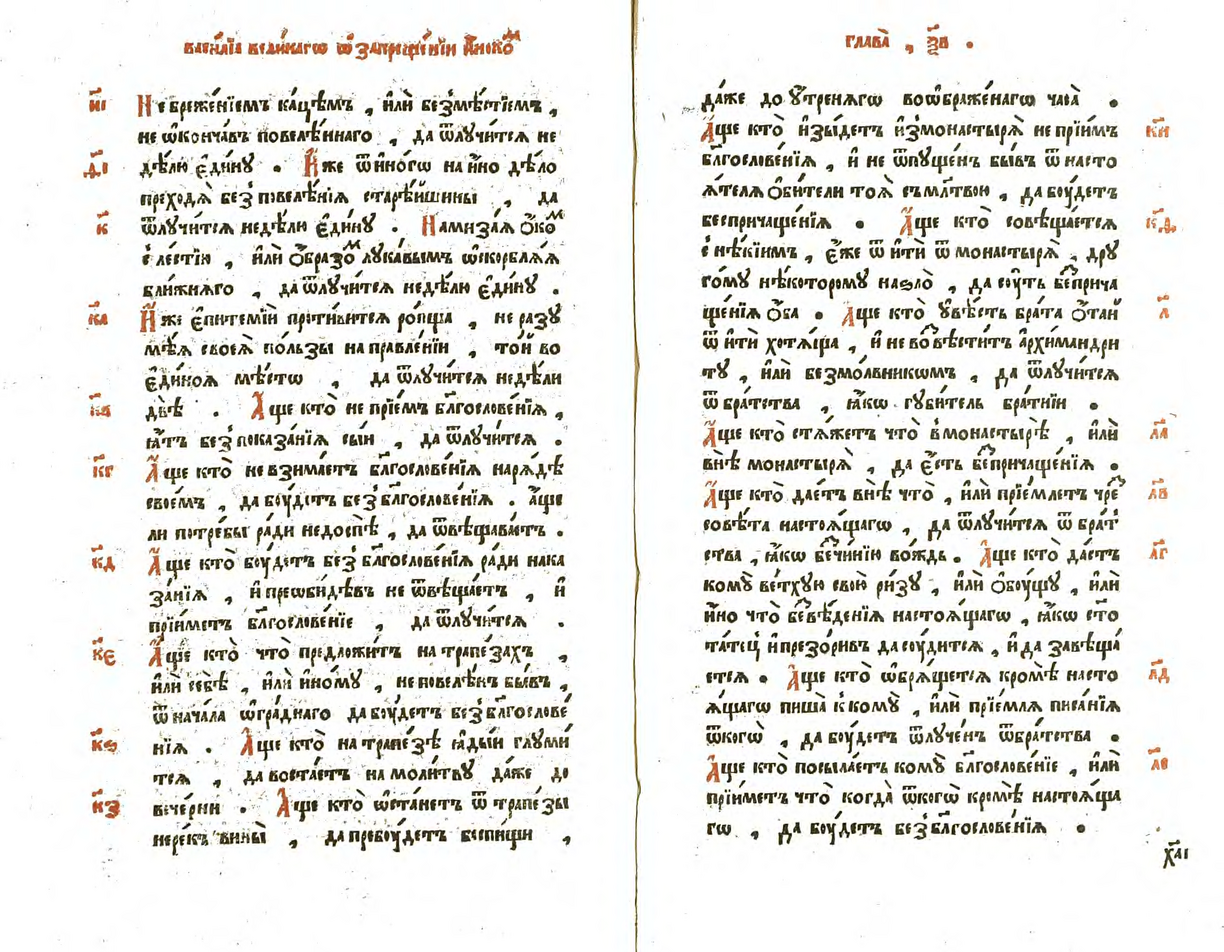 васи́лїа вели́кагѡ ѿ запреще́нїи и҆ноко́м
и҃і Небреже́нїемъ ка́цѣмъ , и҆лѝ безмѣ́стїемъ ,
не ѡ҆кончавъ повелѣ́ннаго , да ѿлучи́тсѧ не
д҃і дѣ́лю є҆ди́ну . И҆́же ѿ и҆но́гѡ на и҆́но дѣ́ло
преходѧ̀ без̾ повелѣ́нїѧ старѣ́йшины , да
к҃ ѿлучи́тсѧ недѣ́лю є҆ди́ну . Намиза́ѧ ѻ҆ко́м
с̾ ле́стїю , и҆лѝ ѻ҆́бразом лука́вымъ ѡ҆скорблѧ́ѧ
бли́жнѧго , да ѿлучи́тсѧ недѣ́лю є҆ди́ну .
к҃а И҆́же є҆питемїи проти́витсѧ ро́пща , не разу
мѣ́ѧ своеѧ̀ по́льзы на правле́нїи , то́й во
є҆ди́номъ мѣ́стѡ , да ѿлучи́тсѧ недѣ́ли
к҃в двѣ̀ . А҆́ще кто̀ не прїе́мъ бл҃гослове́нїѧ ,
ꙗ҆́тъ без̾ показа́нїѧ сы́и , да ѿлучи́тсѧ .
к҃г А҆́ще кто̀ невзима́етъ бл҃гослове́нїѧ нарѧ́дѣ
свое́мъ , да бꙋ́детъ без̾ бл҃гослове́нїѧ . а҆́ще
ли потре́бы ра́ди недоспѣ̀ , да ѿвѣщава́етъ .
к҃д А҆́ще кто̀ бꙋ́детъ без̾ бл҃гослове́нїѧ ради нака
за́нїѧ , и҆ преѡби́дѣвъ не ѿвѣща́етъ , и҆
прїи́метъ бл҃гослове́нїе , да ѿлучи́тсѧ .
к҃є А҆́ще кто̀ что̀ предложи́тъ на трапе́захъ ,
и҆лѝ себѣ̀ , и҆лѝ и҆но́му , не повелѣ́нъ бы́въ ,
ѿ нача́ла ѡ҆гра́днаго да бꙋ́детъ без̾ бл҃гослове́
к҃ѕ нїѧ . А҆́ще кто̀ на трапе́зѣ ꙗ҆ды́и глуми́
тсѧ , да воста́етъ на моли́тву да́же до
к҃з вече́рни . А҆́ще кто̀ ѡ҆ста́нетъ ѿ трапе́зы
не ре́къ вины̀ , да пребꙋ́детъ беспи́щи ,
глава̀ , ѯ҃в .
да́же до у҆́тренѧгѡ воѡбраже́нагѡ часа̀ .
А҆́ще кто̀ и҆зы́детъ и҆змонастырѧ̀ не прїи́мъ к҃и
бл҃гослове́нїѧ , и҆ не ѿпуще́нъ бы́въ ѿ насто
ѧ́телѧ ѻ҆би́тели тоѧ̀ съ мл҃твою , да бꙋ́детъ
беспричаще́нїѧ . А҆́ще кто̀ совѣща́етсѧ к҃д
с̾ нѣ́киимъ , є҆́же ѿ и҆тѝ ѿ монастырѧ̀ , дру
го́му нѣ́которому наѕло̀ , да сꙋ́ть бе́сприча
ще́нїѧ ѻ҆́ба . А҆́ще кто̀ у҆вѣ́сть бра́та ѻ҆та́й л҃
ѿ и҆тѝ хотѧ́ща , и҆ не во̀вѣсти́тъ а҆рхимандри
ту , и҆лѝ безмо́лвникѡмъ , да ѿлучи́тсѧ
ѿ бра́тства , ꙗ҆́кѡ губи́тель бра́тнїи .
А҆́ще кто̀ стѧ́жетъ что̀ в̾монастырѣ̀ , и҆лѝ л҃а
внѣ̀ монастырѧ̀ , да є҆́сть бе́спричаще́нїѧ .
А҆́ще кто̀ дае́тъ внѣ̀ что̀ , и҆лѝ прїе́млетъ чре́с л҃в
совѣ́та настоѧ́щагѡ , да ѿлучи́тсѧ ѿ бра́т
ства , ꙗ҆́кѡ бе́счи́нїю во́ждь . А҆́ще кто̀ дае́тъ л҃г
комꙋ̀ ве́тхую свою̀ ри́зу , и҆лѝ ѻ҆́бꙋщꙋ , и҆лѝ
и҆́но что̀ бе́звѣ́денїѧ настоѧ́щагѡ , ꙗ҆́кѡ ст҃о
та́тец и҆ презо́ривъ да сꙋ́дитсѧ , и҆ да завѣща́
етсѧ . А҆́ще кто̀ ѡ҆брѧ́щетсѧ кромѣ̀ насто л҃д
ѧ́щагѡ пиша̀ к̾комꙋ̀ , и҆лѝ прїе́млѧ писа́нїѧ
ѿкогѡ̀ , да бꙋ́детъ ѿлуче́нъ ѿбра́тства .
А҆́ще кто̀ посыла́етъ комꙋ̀ бл҃гослове́нїе , и҆лѝ л҃е
прїи́метъ что̀ когда̀ ѿкогѡ̀ кромѣ̀ настоѧ́ща
гѡ , да бꙋ́детъ без̾ бл҃гослове́нїѧ .
х҃аі